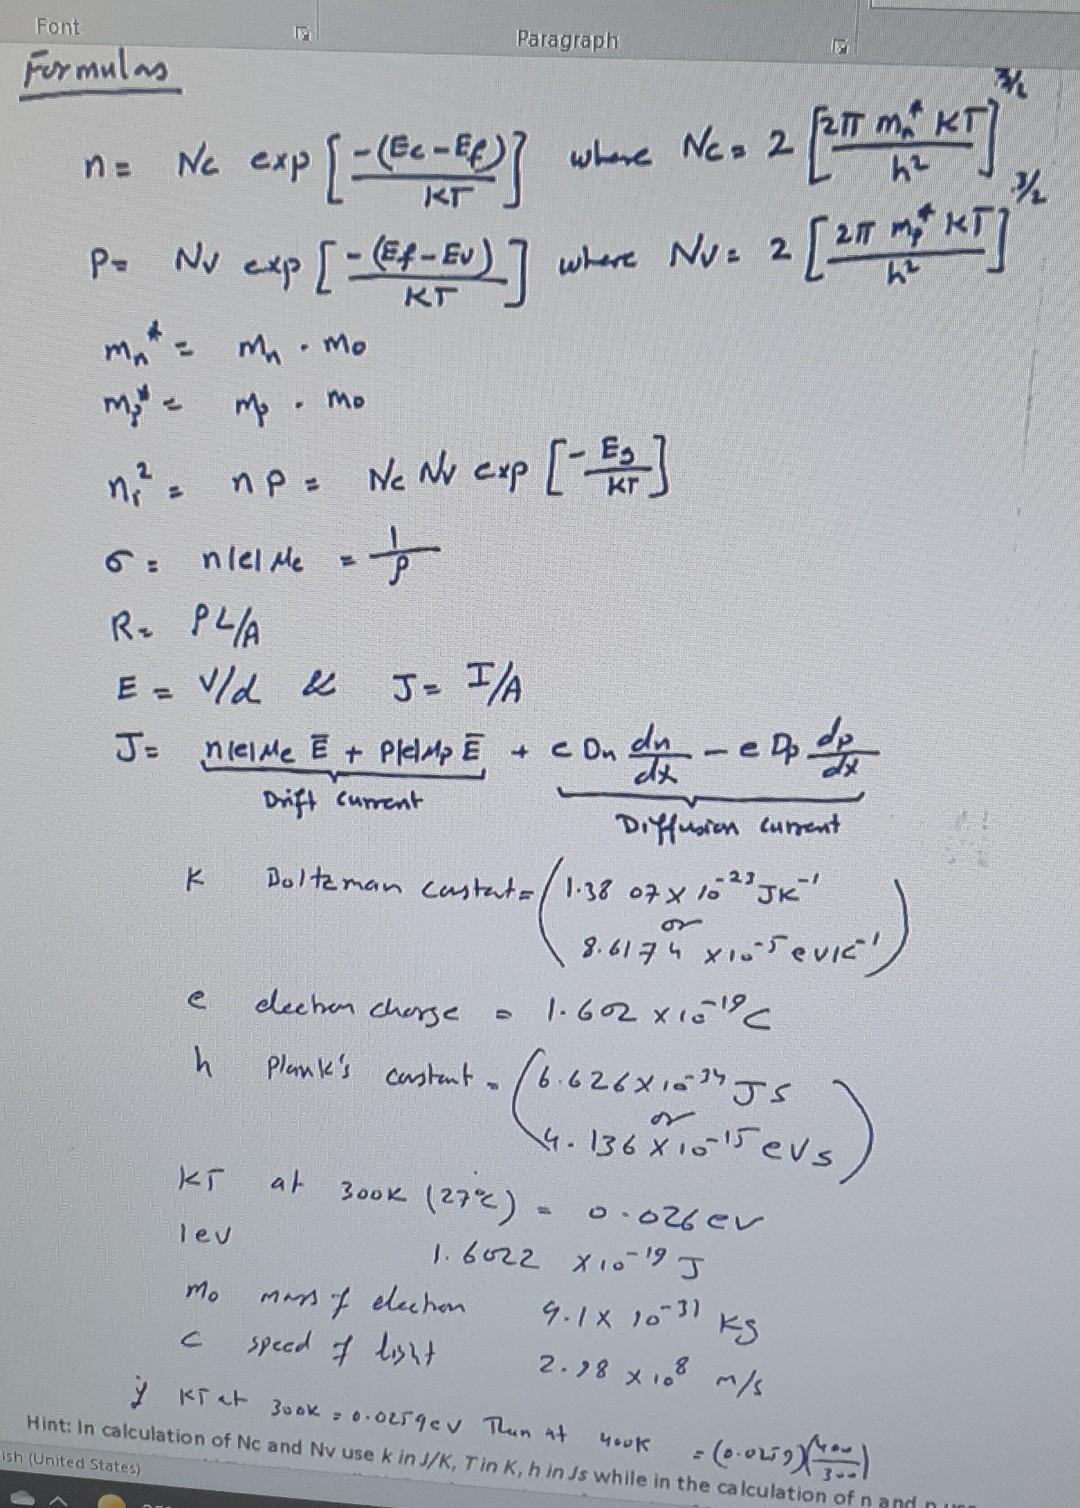 Font
Paragraph
Formulas
n = Nc exp [-(Ec-Ef)/KT] where Nc = 2 [2π mn* KT/h²]^3/2
P = Nv exp [-(Ef-Ev)/KT] where Nv = 2 [2π mp* KT/h²]^3/2
mn* = mn . mo
mp* = mp . mo
ni² = n p = Nc Nv exp [-Eg/KT]
σ = n|e| μe = 1/ρ
R = ρL/A
E = V/d & J = I/A
J = n|e|μe Ē + P|e|μp Ē + e Dn dn/dx - e Dp dp/dx
Drift current
Diffusion current
K Boltzman constat = (1.3807 x 10^-23 JK^-1
or
8.6174 x10^-5 evK^-1)
e electron charge = 1.602 x10^-19 C
h Plank's constant = (6.626 x 10^-34 JS
or
4.136 x 10^-15 eVs)
KT at 300K (27°c) = 0.026 ev
1ev 1.6022 x10^-19 J
mo mass of electron 9.1 x 10^-31 kg
c speed of light 2.98 x10^8 m/s
if KT at 300K = 0.0259ev Then at 400K = (0.0259)(400/300)
Hint: In calculation of Nc and Nv use k in J/K, T in K, h in Js while in the calculation of n and p use
ish (United States)